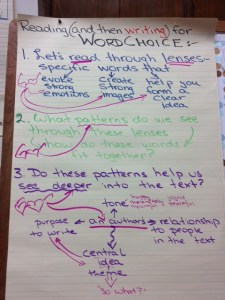 Reading (and then writing) for
WORD CHOICE:-
1. Let's read through lenses:-
specific words that
evoke strong emotions
create strong images
help you form a clear idea
2. What patterns do we see
through these lenses
how do these words
fit together?
3. Do these patterns help us
see deeper into the text?
tone
purpose to write
an author's
relationship to people in the text
central idea
theme
So what?